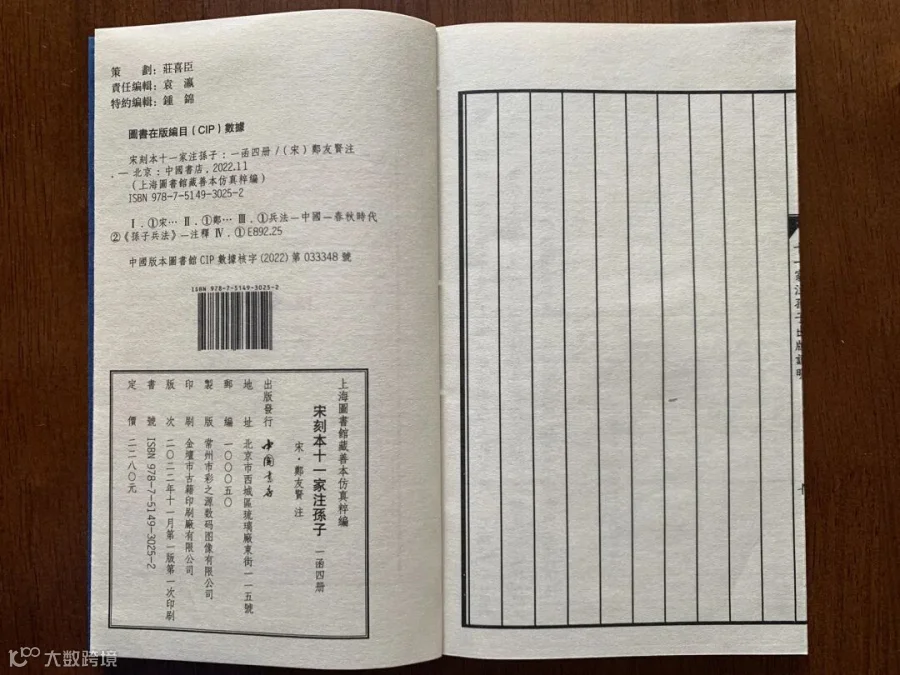 策　　劃：莊喜臣
責任編輯：袁　瀛
特約編輯：鍾　錦
圖書在版編目（CIP）數據
宋刻本十一家注孫子：一函四册/（宋）鄭友賢注
.— 北京：中國書店，2022.11
（上海圖書館藏善本仿真粹編）
ISBN 978-7-5149-3025-2
Ⅰ.①宋… Ⅱ.①鄭… Ⅲ.①兵法—中國—春秋時代
②《孫子兵法》—注釋 Ⅳ.①E892.25
中國版本圖書館CIP數據核字（2022）第033348號
ISBN 978-7-5149-3025-2
上海圖書館藏善本仿真粹編
宋刻本十一家注孫子　一函四册
宋·鄭友賢　注
出版發行　中國書店
地　址　北京市西城區琉璃廠東街一一五號
郵　編　一〇〇〇五〇
製　版　常州市彩之源数码图像有限公司
印　刷　金壇市古籍印刷廠有限公司
版　次　二〇二二年十一月第一版第一次印刷
書　號　ISBN 978-7-5149-3025-2
定　價　二二八〇元
十一家注孫子出版說明
大数跨境